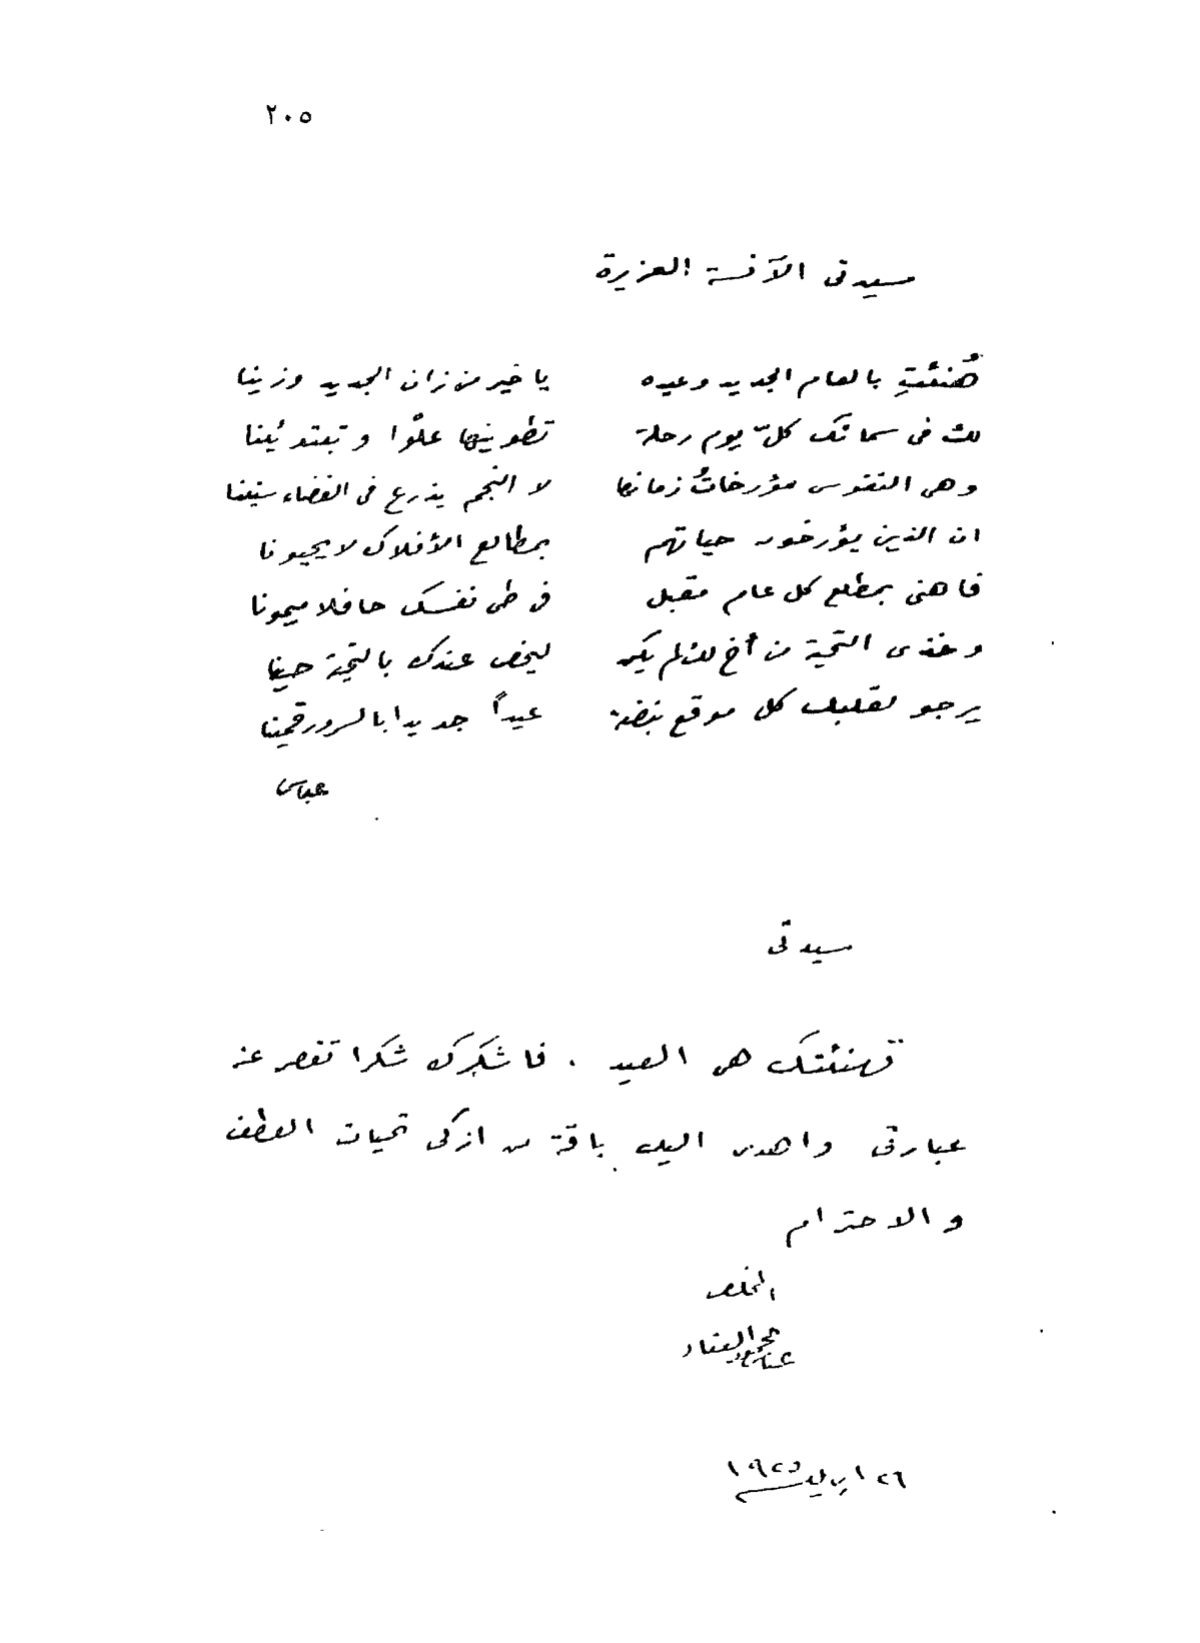 ٢٠٥
سيدتى الآنسة العزيزة
هُنئتِ بالعام الجديد وعيده يا خير من زان الجديد وزينا
لك فى سمائك كلّ يوم رحلة تطوينها علوّا وتبتدئينا
وهى النفوس مؤرخاتُ زمانها لا النجم يذرع فى الفضاء سنينا
ان الذين يؤرخون حياتهم بمطالع الأفلاك لا يحيونا
فاهنى بمطلع كل عام مقبل فى طى نفسك حافلا ميمونا
وخذى التحية من أخ لك لم يكن ليخص عندك بالتحية حينا
يرجو لقلبك كل موقع نبضة عيداً جديدا بالسرور قمينا
عباس
سيدتى
تهنئتك هى العيد . فاشكرك شكرا تقصر عنه
عبارتى واهدى اليك باقة من ازكى تحيات العطف
والاحترام
المخلص
عباس محمود العقاد
٢٦ ابريل سنة ١٩٢٥